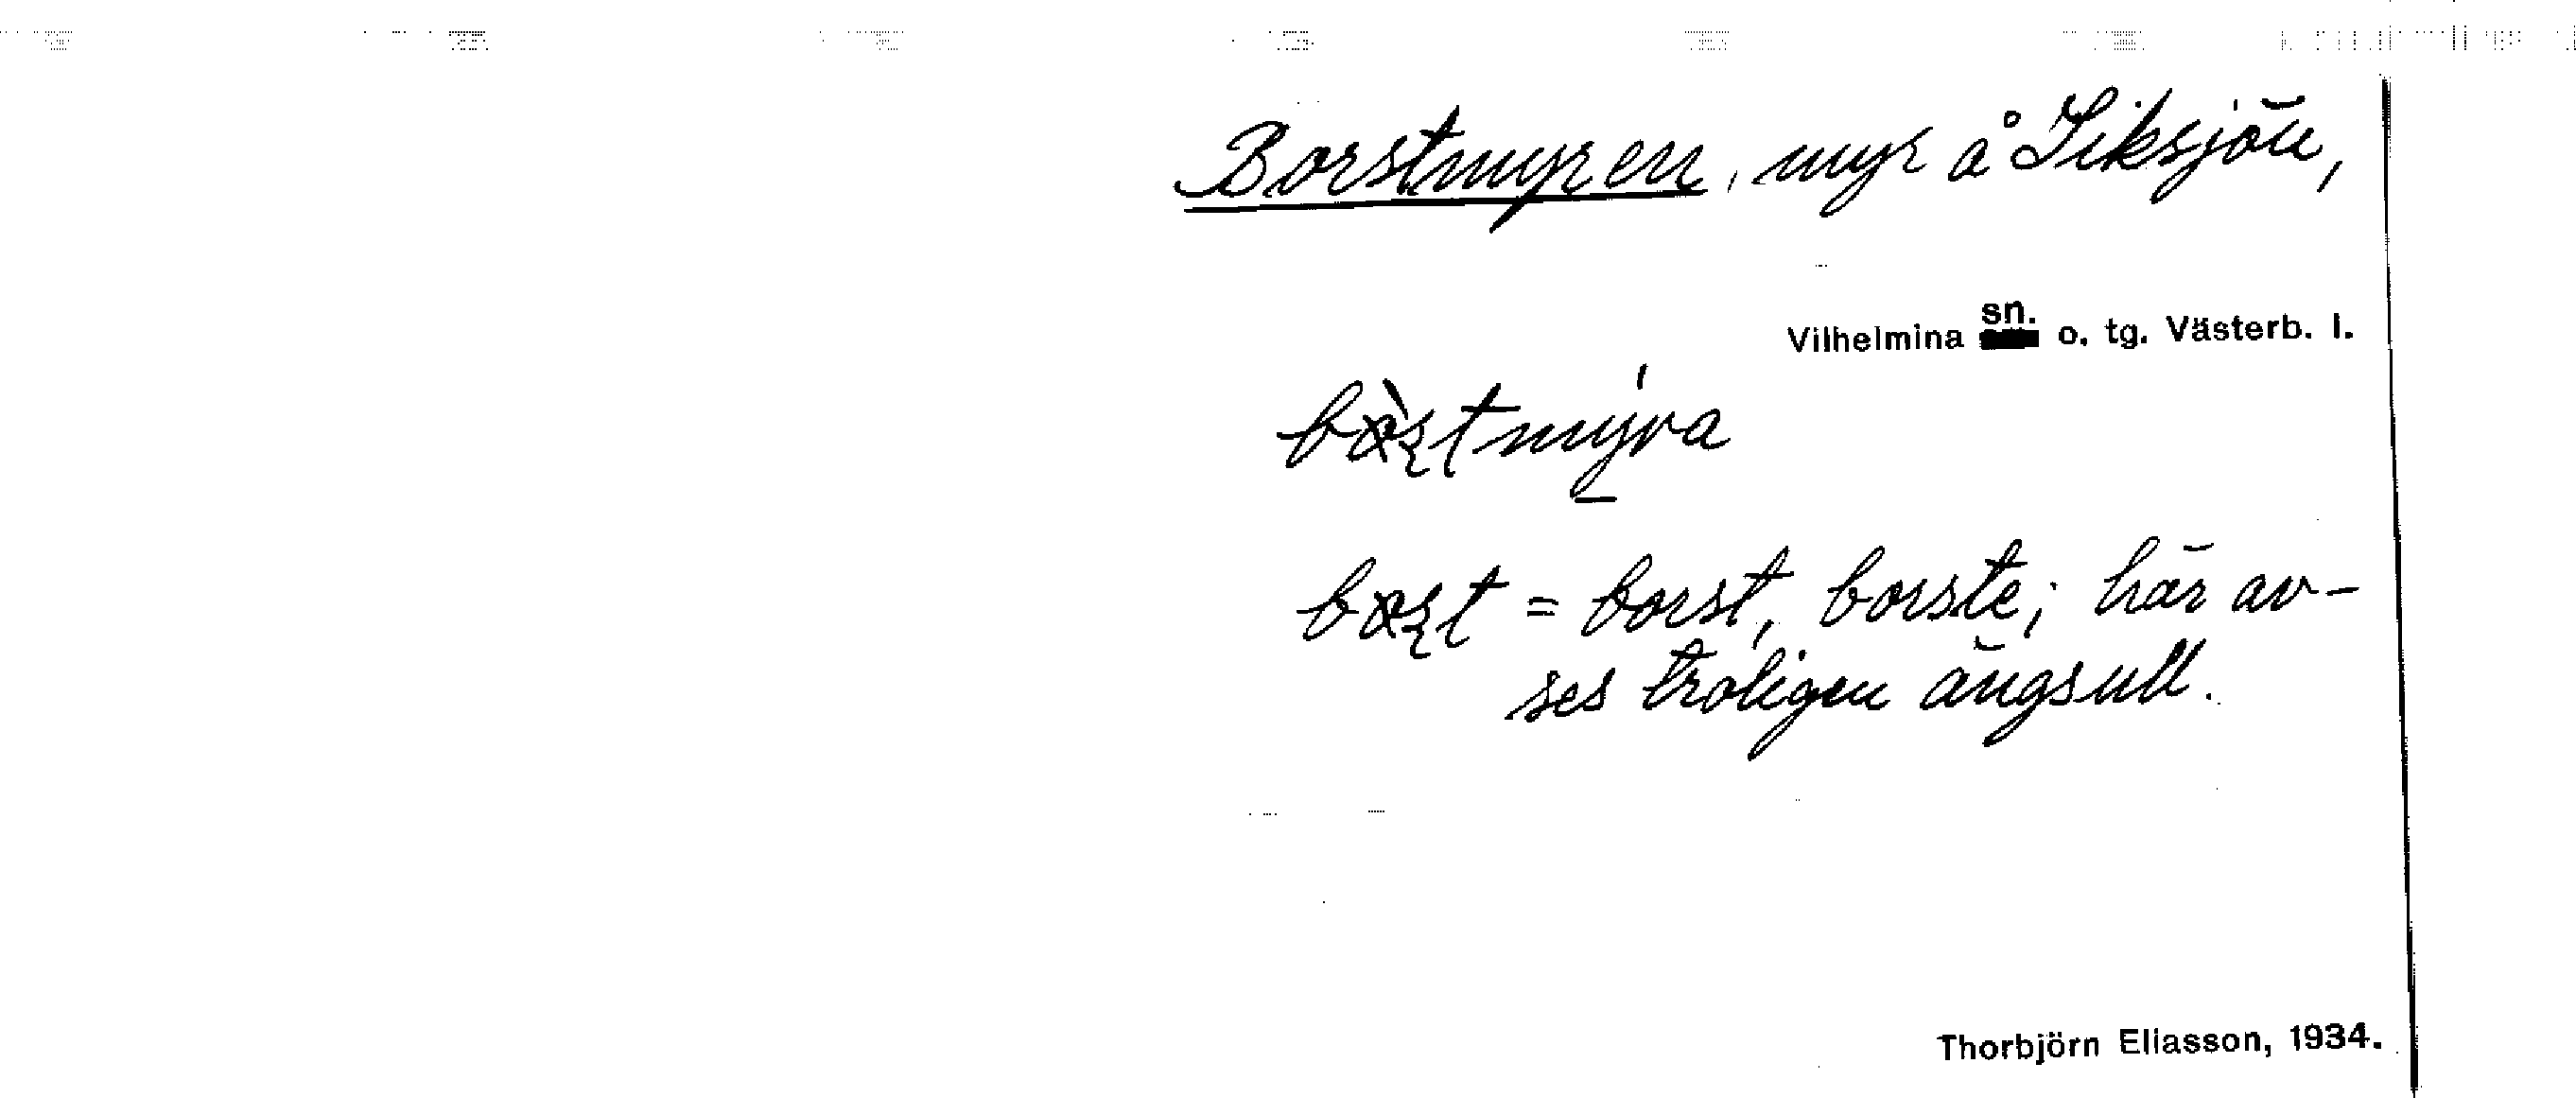 Borstmyren, myr å Siksjön,
Vilhelmina sn. o. tg. Västerb. l.
bòştmý̠ra
boşt = borst, borste; här av-
ses troligen ängsull.
Thorbjörn Eliasson, 1934.